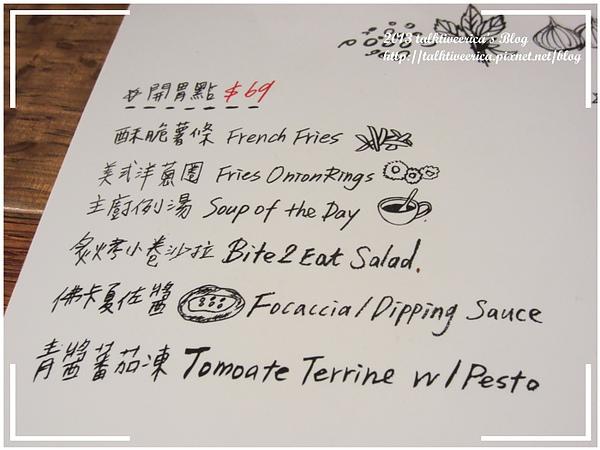 2013 talktiveerica's Blog
http://talktiveerica.pixnet.net/blog
開胃點 $69
酥脆薯條 French Fries
美式洋蔥圈 Fries OnionRings
主廚例湯 Soup of the Day
炙烤小卷沙拉 Bite2Eat Salad.
佛卡夏佐醬 Focaccia/Dipping Sauce
青醬蕃茄凍 Tomoate Terrine w/Pesto